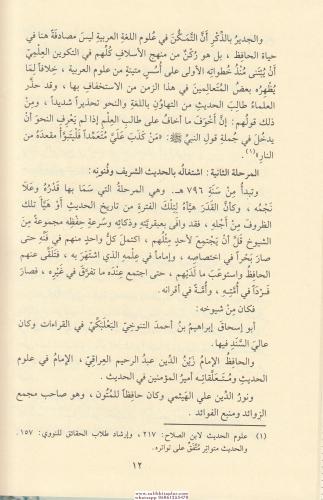 والجديرُ بالذِّكرِ أنَّ التَّمَكُّنَ في عُلومِ اللغةِ العربيةِ ليسَ مصادفةً هنا في
حياة الحافِظ ، بل هو رُكنٌ من منهجِ الأسلافِ كُلِّهم في التكوينِ العِلميِّ
أنْ يُبْتَنى مُنْذُ خُطواتِهِ الأولى على أُسُسٍ متينةٍ من علوم العربية ، خلافاً لِما
يُظْهِرُه بعضُ المُتَعالِمينَ في هذا الزمنِ من الاستخفافِ بها ، وقد حذَّر
العلماءُ طالبَ الحديثِ من التهاوُنِ باللغةِ والنحوِ تحذيراً شديداً ، ومِنْ
ذلك قولُهم : إنَّ أخوفَ ما أخافُ على طالبِ العلمِ إذا لم يَعرِفِ النحوَ أنْ
يدخُلَ في جُملةِ قولِ النبيِّ ﷺ : «مَنْ كَذَبَ عَلَيَّ مُتَعَمِّداً فَلْيَتَبَوَّأْ مقعدَهُ من
النار»(١).
المرحلة الثانية : اشتغالُه بالحديثِ الشريفِ وفُنونِه :
وتبدأُ مِنْ سَنَةِ ٧٩٦ هـ. وهي المرحلةُ التي سَما بها قَدْرُهُ وعَلَا
نَجْمُه ، وكأنَّ القَدَرَ هيَّأهُ لِتِلْكَ الفترة من تاريخِ الحديثِ أوْ هَيَّأَ تلك
الظروفَ مِنْ أَجْلِهِ ، فقد وافى بعبقريَّتِهِ وذكائِهِ وسرعةِ حِفْظِهِ مجموعةً مِنَ
الشيوخِ قَلَّ أنْ يَجْتَمِعَ لأحدٍ مِثْلُهم ، اكتملَ كلُّ واحدٍ منهم في فَنِّهِ حتى
صارَ بَحْراً في اختصاصِه ، وإماماً في عِلْمِهِ الذي اشتَهَرَ به ، فتلَقَّى عنهم
الحافظُ واستوعَبَ ما لَدَيْهِم ، حتى اجتمع عِنْدَه ما تفرَّقَ في غَيْرِهِ ، فصارَ
فَرْداً في أُمَّتِهِ . وأُمَّةً في أقرانه .
فكان مِنْ شيوخِه :
أبو إسحاق إبراهيمُ بنُ أحمدَ التنوخيُّ البَعْلَبَكِّي في القراءات وكان
عاليَ السَّنَدِ فيها.
والحافِظُ الإمامُ زَيْنُ الدِّين عبدُ الرحيم العِراقيّ ، الإمامُ في علومِ
الحديثِ ومُتَعَلِّقاتِه أميرُ المؤمنين في الحديث .
ونورُ الدِّين علي الهيثمي وكان حافِظاً للمُتُون ، وهو صاحب مجمع
الزوائد ومنبع الفوائد .
(١) علوم الحديث لابن الصلاح: ٢١٧، وإرشاد طلاب الحقائق للنووي: ١٥٧.
والحديث متواتِرٌ مُتَّفَقٌ على تواتره.
١٢